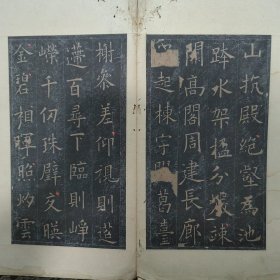 山抗殿絕壑為池
跨水架楹分巖竦
闕高閣周建長廊
四起棟宇葛臺
榭參差仰視則迢
遰百尋下臨則崢
嶸千仞珠璧交暎
金碧相暉照灼雲